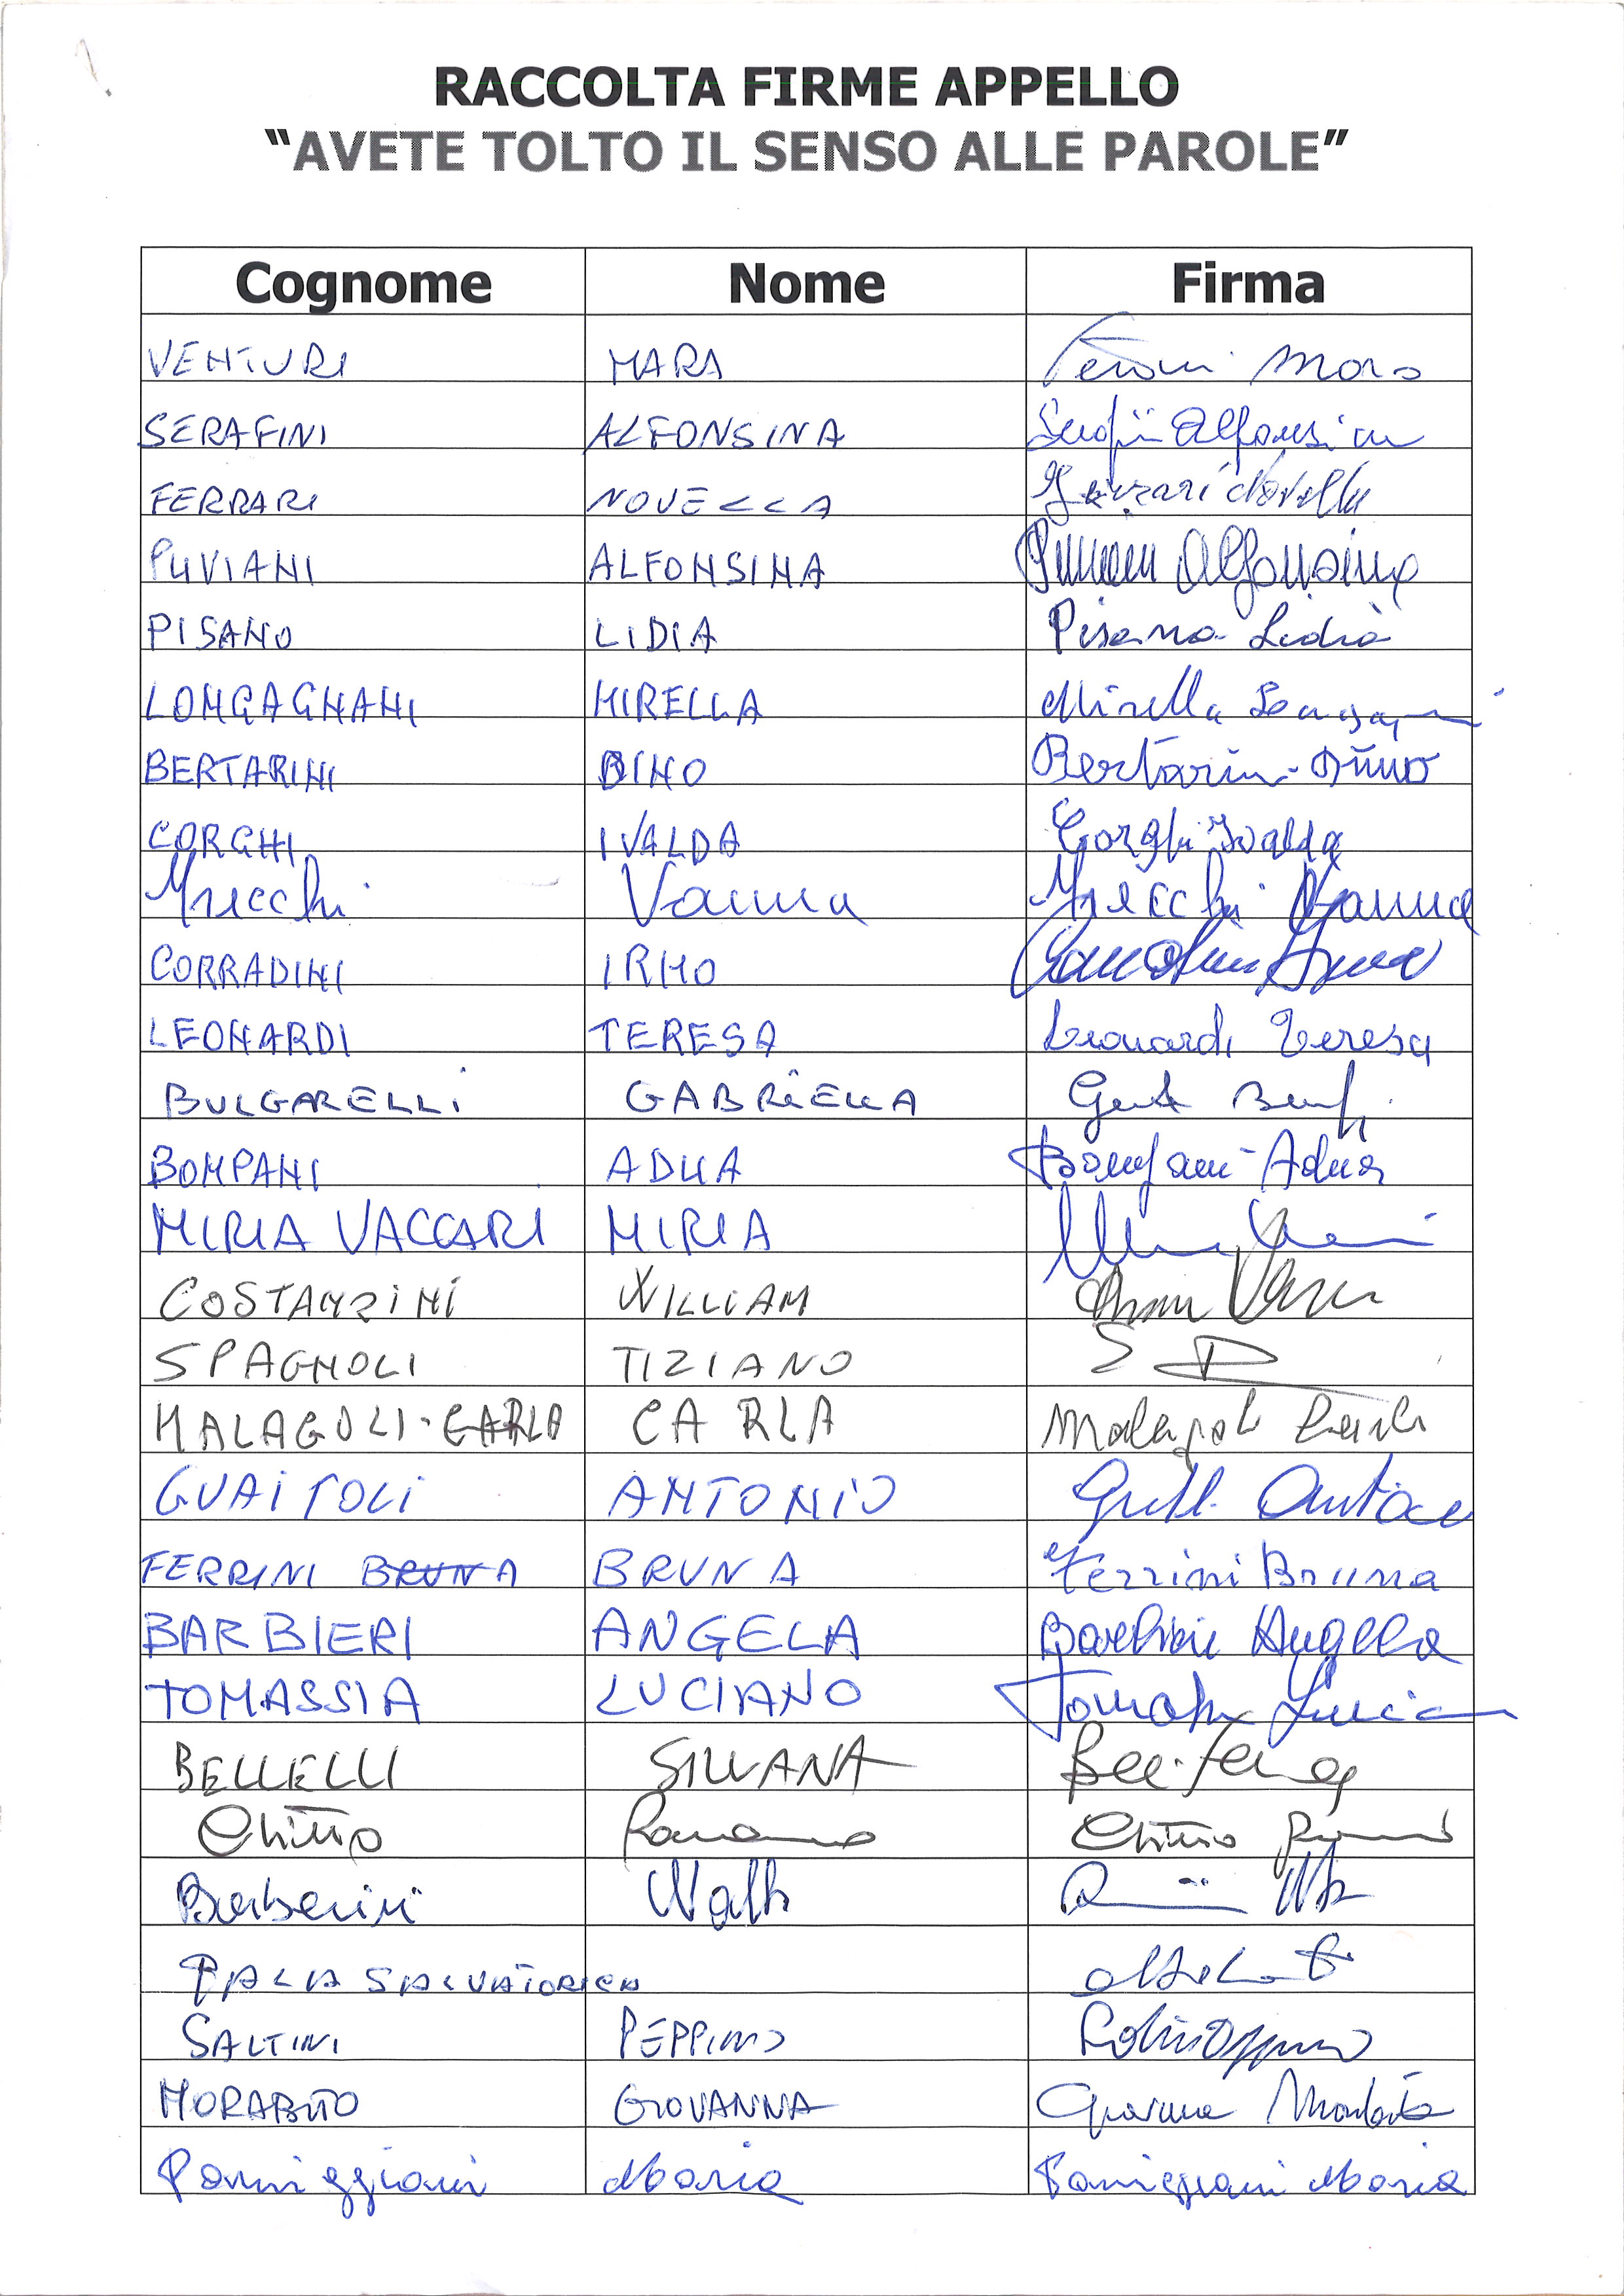 RACCOLTA FIRME APPELLO
“AVETE TOLTO IL SENSO ALLE PAROLE”
Cognome Nome Firma
VENTURI MARA Venturi Mara
SERAFINI ALFONSINA Serafini Alfonsina
FERRARI NOVELLA Ferrari Novella
PUVIANI ALFONSINA Puviani Alfonsina
PISANO LIDIA Pisano Lidia
LONGAGNANI MIRELLA Mirella
BERTARINI DINO Bertarini Dino
CORGHI IVALDA Corghi Ivalda
Vanna Vanna
CORRADINI IRMO Corradini Irmo
LEONARDI TERESA Leonardi Teresa
BULGARELLI GABRIELLA
BOMPANI ADUA Bompani Adua
MIRIA VACCARI MIRIA
COSTANZINI WILLIAM
SPAGNOLI TIZIANO
MALAGOLI-CARLA CARLA Malagoli Carla
GUAITOLI ANTONIO
FERRINI BRUNA BRUNA Ferrini Bruna
BARBIERI ANGELA Barbieri Angela
TOMASSIA LUCIANO
BELLELLI SILVANA
Romano
Barberini
SALTINI PEPPINO
MORABITO GIOVANNA Giovanna Morabito
Parmiggiani Maria Parmiggiani Maria